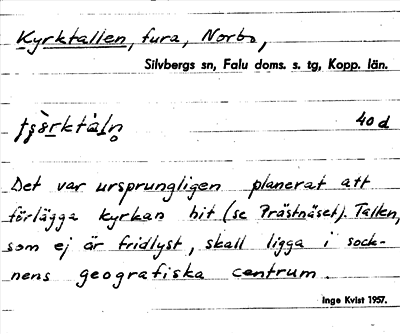 Kyrktallen, fura, Norbo,
Silvbergs sn, Falu doms. s. tg, Kopp. län.
40 d
Det var ursprungligen planerat att
förlägga kyrkan hit (se Prästnäset). Tallen,
som ej är fridlyst, skall ligga i sock-
nens geografiska centrum.
Inge Kvist 1957.